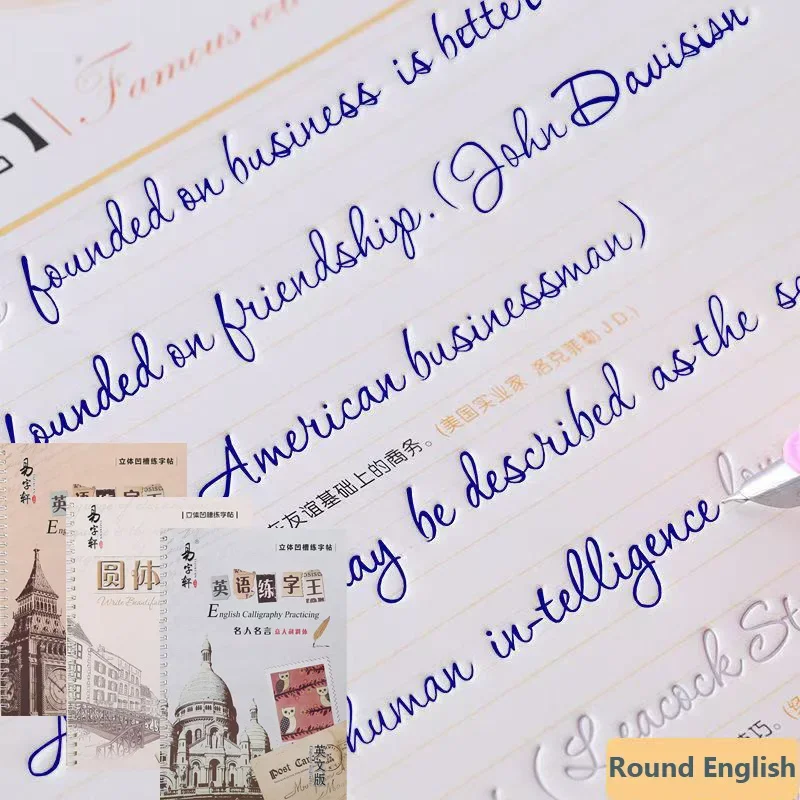 Famous
founded on business is better
founded on friendship. (John Davisisn
American businessman)
在友谊基础上的商务。(美国实业家 洛克菲勒 J D.)
may be described as the
human in-telligence
(Leacock St
技巧。
立体凹槽练字帖
易字轩
英语练字王
立体凹槽练字帖
易字轩
圆体
Write Beautiful
立体凹槽练字帖
易字轩
英语练字王
English Calligraphy Practicing
名人名言
Post
英文版
Round English